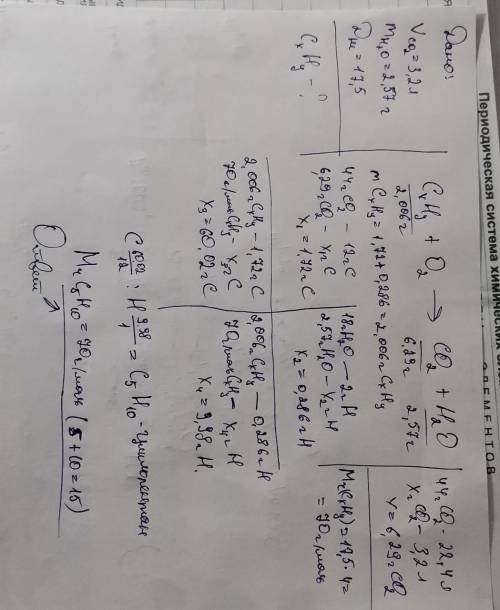 Периодическая система химических эле
ЭЛЕМЕНТОВ
Дано:
Vco₂=3,2л
mH₂O=2,57г
DHe=17,5
CxHy-?
CxHy + O₂ → CO₂ + H₂O
2,006г 6,29г 2,57г
mCxHy=1,72+0,286=2,006г CxHy
44г CO₂-12г C
6,29г CO₂-x₁г C
x₁=1,72г C
18г H₂O-2г H
2,57г H₂O-x₂г H
x₂=0,286г H
44г CO₂-22,4л
xг CO₂-3,2л
v=6,29г CO₂
Mr(CxHy)=17,5·4=
=70г/моль
2,006г CxHy-1,72г C
70г/моль CxHy-x₃г C
x₃=60,02г C
2,006г CxHy-0,286г H
70г/моль CxHy-x₄г H
x₄=9,98г H.
C 60,02/12 : H 9,98/1 = C₅H₁₀-циклопентан
Mr C₅H₁₀=70г/моль (5+10=15)
Ответ ↗